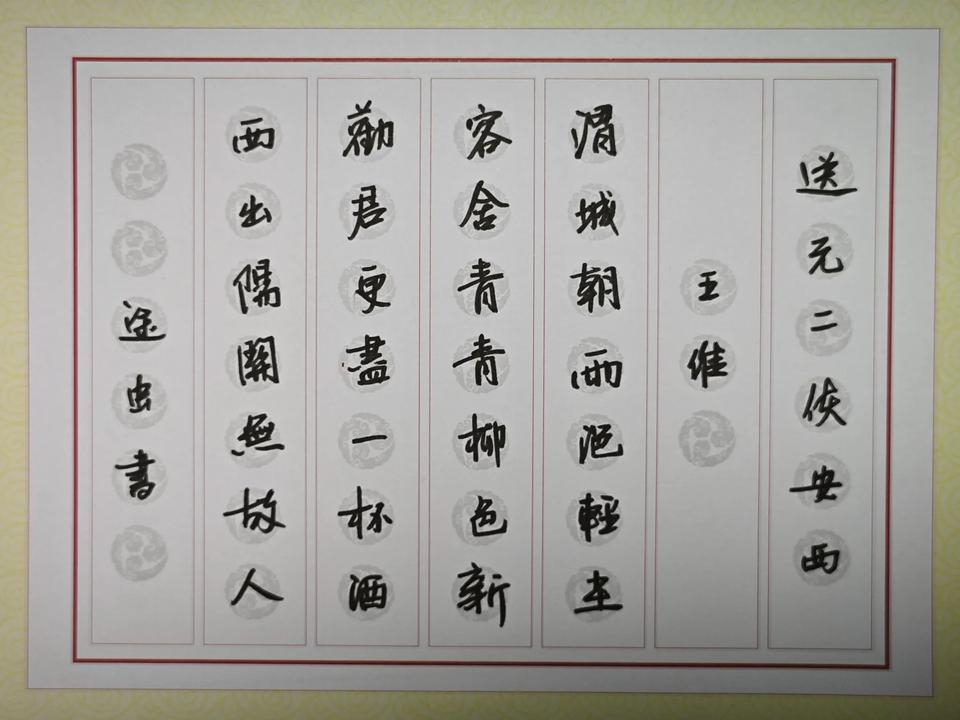 送元二使安西
王維
渭城朝雨浥輕尘
客舍青青柳色新
勸君更盡一杯酒
西出陽關無故人
途虫書